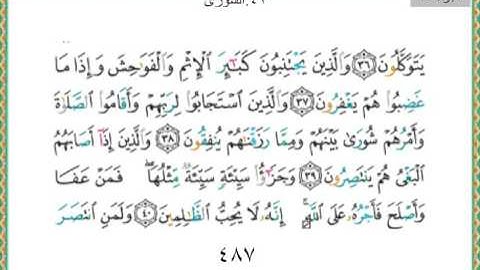 ٤٢.الشورى
يَتَوَكَّلُونَ ﴿٣٦﴾ وَالَّذِينَ يَجْتَنِبُونَ كَبَٰٓئِرَ الْإِثْمِ وَالْفَوَٰحِشَ وَإِذَا مَا
غَضِبُوا هُمْ يَغْفِرُونَ ﴿٣٧﴾ وَالَّذِينَ اسْتَجَابُوا لِرَبِّهِمْ وَأَقَامُوا الصَّلَوٰةَ
وَأَمْرُهُمْ شُورَىٰ بَيْنَهُمْ وَمِمَّا رَزَقْنَٰهُمْ يُنفِقُونَ ﴿٣٨﴾ وَالَّذِينَ إِذَآ أَصَابَهُمُ
الْبَغْىُ هُمْ يَنتَصِرُونَ ﴿٣٩﴾ وَجَزَٰٓؤُا سَيِّئَةٍ سَيِّئَةٌ مِّثْلُهَا ۖ فَمَنْ عَفَا
وَأَصْلَحَ فَأَجْرُهُۥ عَلَى اللَّهِ ۚ إِنَّهُۥ لَا يُحِبُّ الظَّٰلِمِينَ ﴿٤٠﴾ وَلَمَنِ انتَصَرَ
٤٨٧